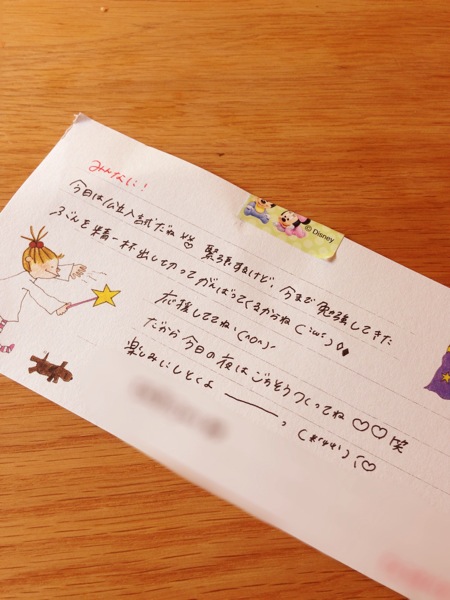 みんなに!
今日は公立入試だね♡ 緊張するけど、今まで勉強してきた
ぶんを精一杯出し切ってがんばってくるからね(:'ω':)◊♦
応援しててね!(^o^)/
だから今日の夜はごちそうつくってね♡♡笑
楽しみにしとくよ――っ(*'∀'):♡
© Disney